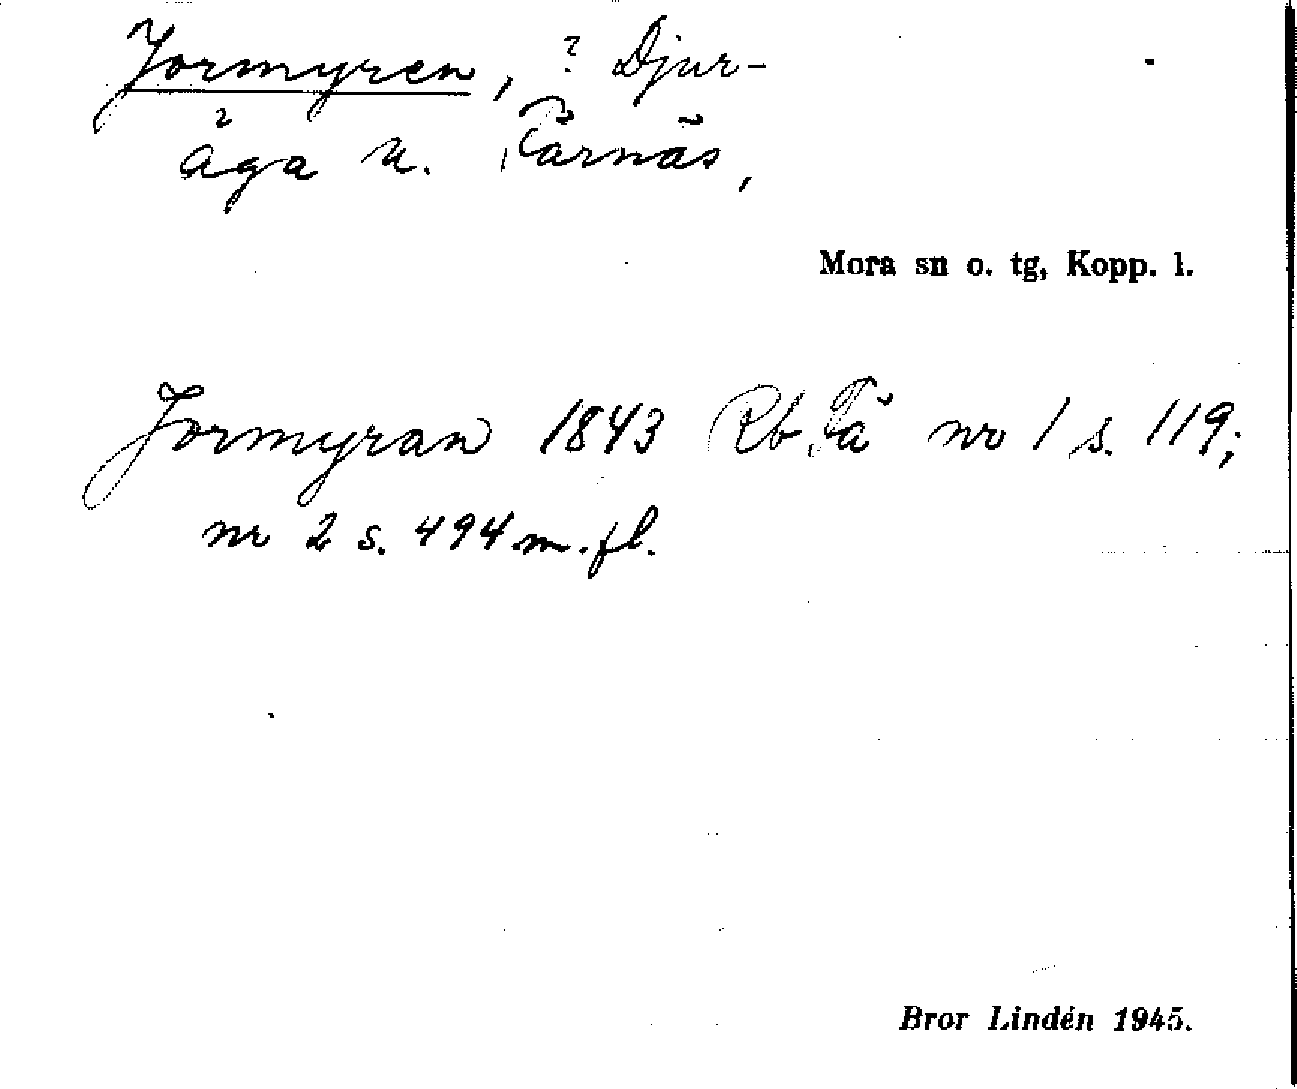 Jormyren, ? Djur-
åga u. Färnäs,
Mora sn o. tg, Kopp. l.
Jormyran 1843 Rb Fä nr 1 s. 119;
nr 2 s. 494 m.fl.
Bror Lindén 1945.